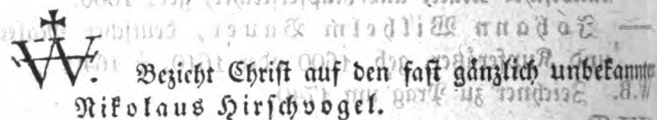 W. Bezieht Christ auf den fast gänzlich unbekannten
Nikolaus Hirschvogel.